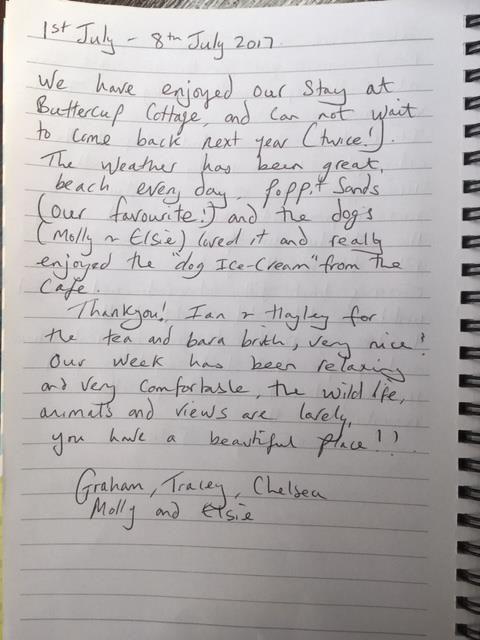 1st July - 8th July 2017.
We have enjoyed our stay at
Buttercup Cottage, and can not wait
to come back next year (twice!).
The weather has been great,
beach every day, Poppit Sands
(our favourite!) and the dogs
(Molly & Elsie) loved it and really
enjoyed the "dog Ice-Cream" from the
Cafe.
Thankyou! Ian & Hayley for
the tea and bara brith, very nice!
Our week has been relaxing
and very comfortable, the wild life,
animals and views are lovely,
you have a beautiful place!!
Graham, Tracey, Chelsea
Molly and Elsie